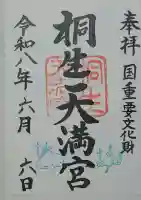 奉拝
国重要文化財
桐生天満宮
令和八年六月
六日